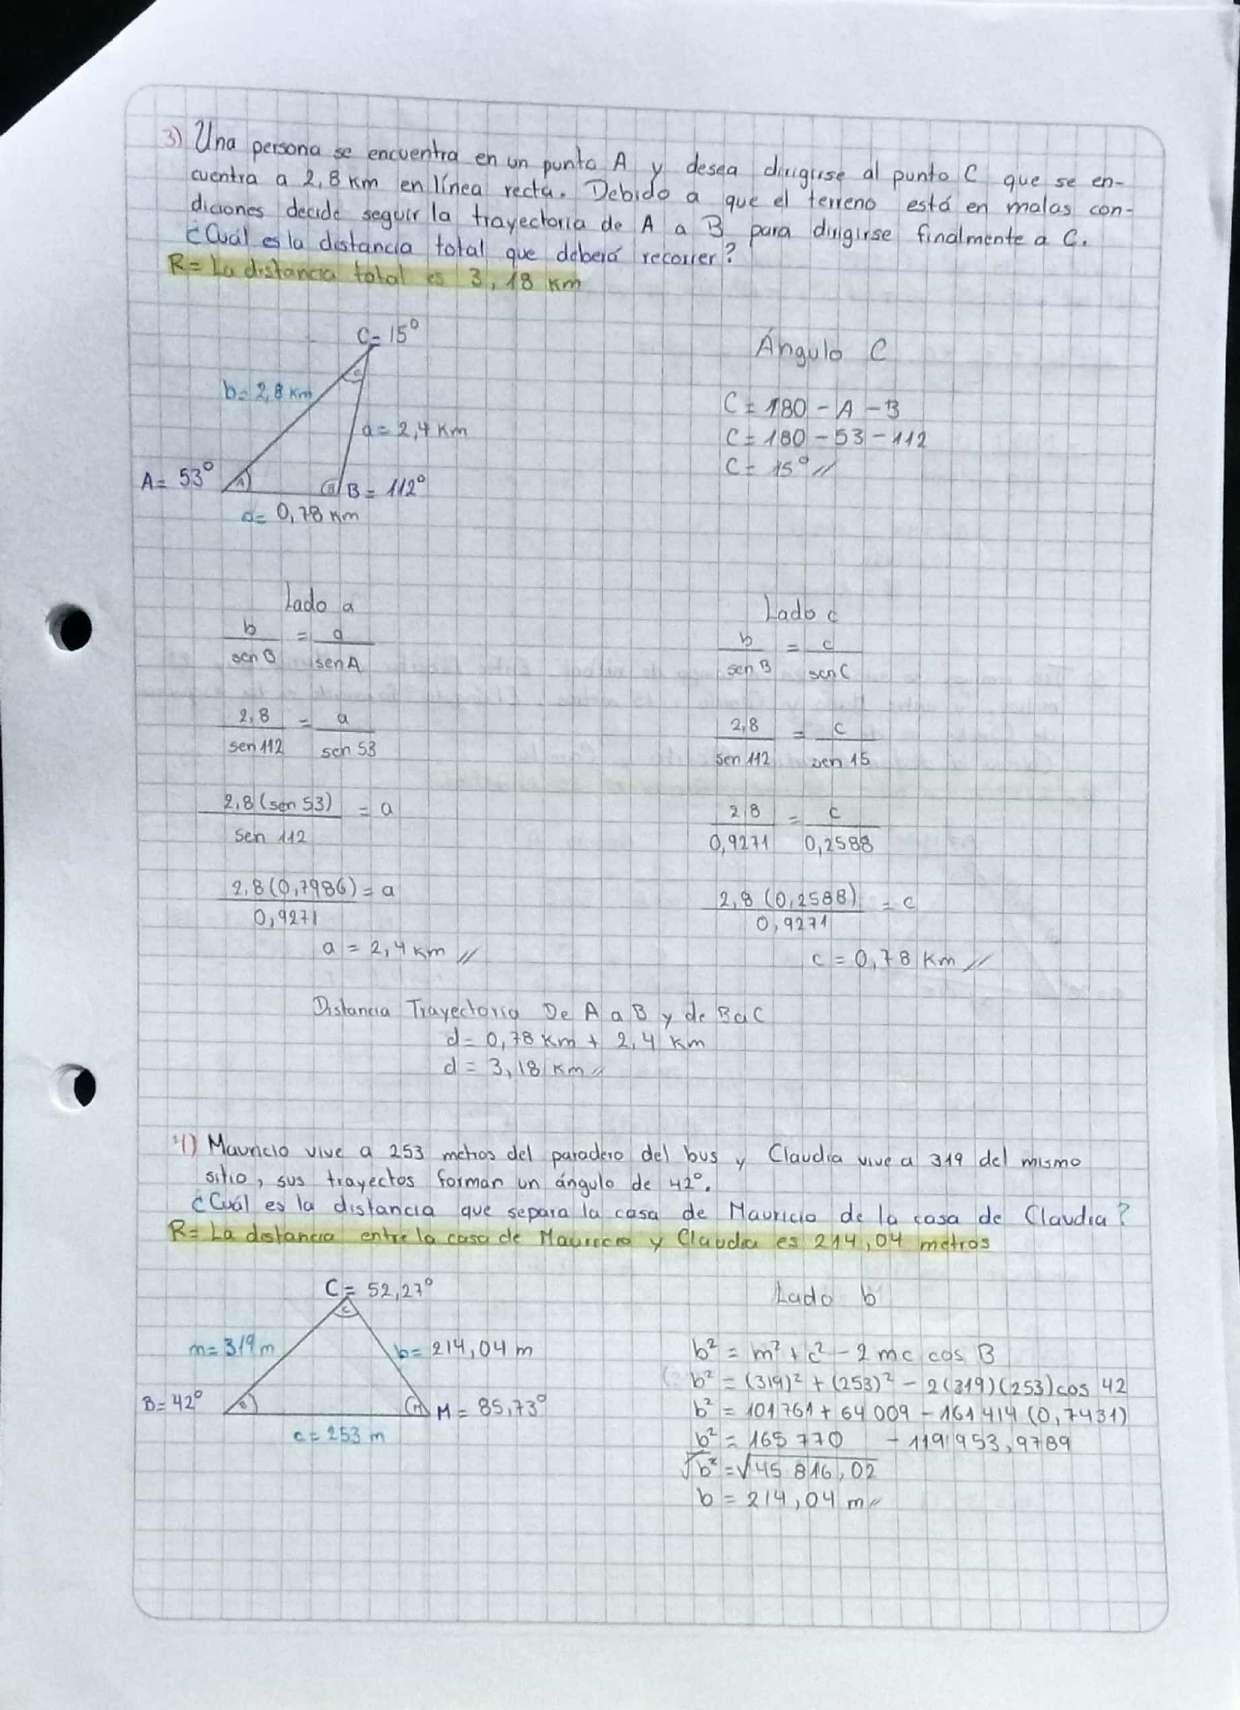 3) Una persona se encuentra en un punto A y desea dirigirse al punto C que se en-
cuentra a 2,8 km en línea recta. Debido a que el terreno está en malas con-
diciones decide seguir la trayectoria de A a B para dirigirse finalmente a C.
¿Cuál es la distancia total que deberá recorrer?
R= La distancia total es 3,18 km
C= 15°
b= 2,8 km
c
a= 2,4 km
A= 53°
A
B
B= 112°
a= 0,78 km
Ángulo C
C = 180 - A - B
C = 180 - 53 - 112
C = 15° //
Lado a
b/sen B = a/sen A
2,8/sen 112 = a/sen 53
2,8 (sen 53)/sen 112 = a
2,8 (0,7986)/0,9271 = a
a = 2,4 km //
Lado c
b/sen B = c/sen C
2,8/sen 112 = c/sen 15
2,8/0,9271 = c/0,2588
2,8 (0,2588)/0,9271 = c
c = 0,78 km //
Distancia Trayectoria De A a B y de B a C
d = 0,78 km + 2,4 km
d = 3,18 km //
4) Mauricio vive a 253 metros del paradero del bus y Claudia vive a 319 del mismo
sitio, sus trayectos forman un ángulo de 42°.
¿Cuál es la distancia que separa la casa de Mauricio de la casa de Claudia?
R= La distancia entre la casa de Mauricio y Claudia es 214,04 metros
C= 52,27°
c
m= 319 m
b= 214,04 m
B= 42°
B
M
M = 85,73°
c= 253 m
Lado b
b² = m² + c² - 2 mc cos B
b² = (319)² + (253)² - 2(319)(253) cos 42
b² = 101761 + 64 009 - 161 414 (0,7431)
b² = 165 770 - 119 953,9789
√b² = √45 816,02
b = 214,04 m //